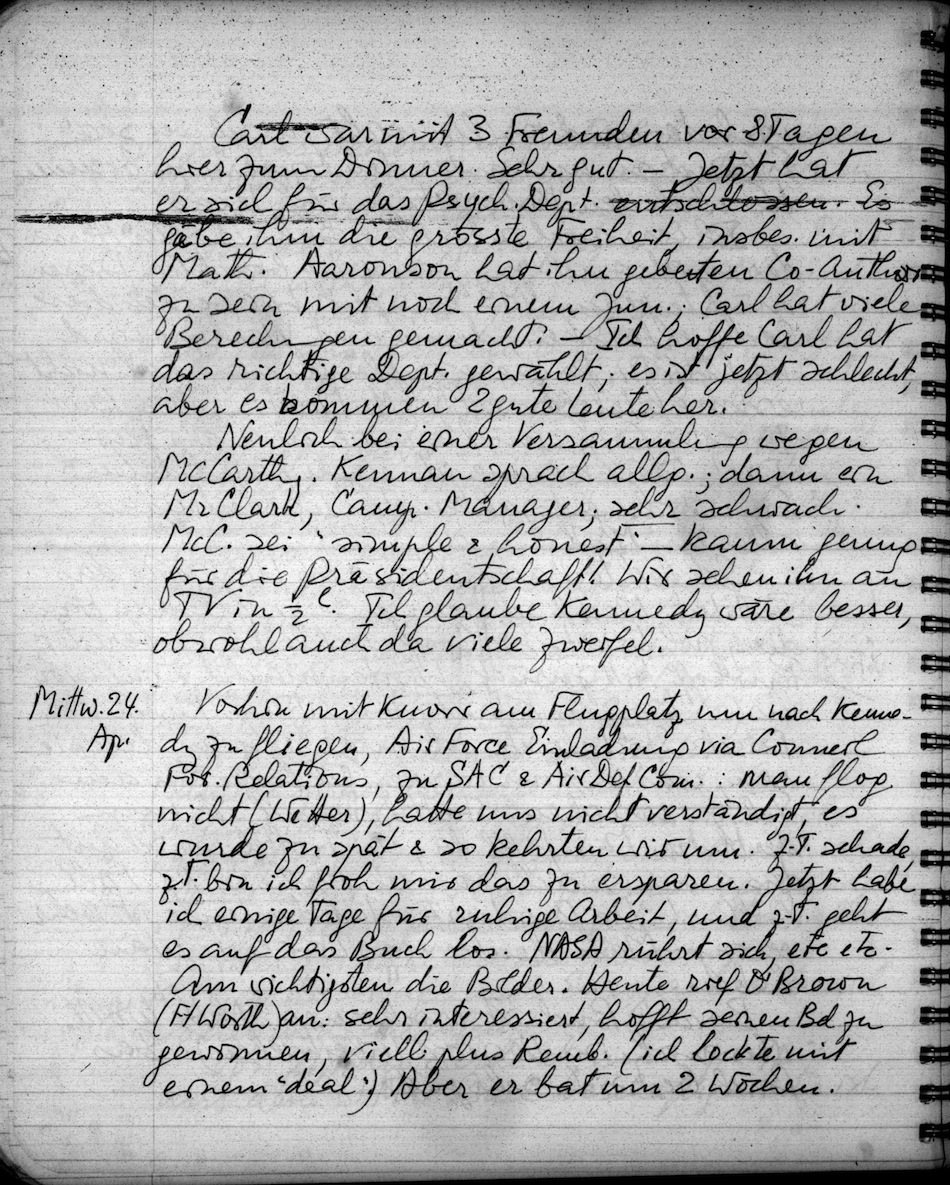 Carl war mit 3 Freunden vor 8 Tagen
hier zum Dinner. Sehr gut. – Jetzt hat
er sich für das Psych. Dept. entschlossen. Es
gäbe ihm die grösste Freiheit, insbes. mit
Math. Aaronson hat ihn gebeten Co-Author
zu sein mit noch einem jun.; Carl hat viele
Berechngen gemacht. – Ich hoffe Carl hat
das richtige Dept. gewählt; es ist jetzt schlecht,
aber es kommen 2 gute Leute her.
Neulich bei einer Versammlung wegen
McCarth. Kennan sprach allg.; dann ein
Mr Clark, Camp. Manager; sehr schwach.
McC. sei "simple & honest" – kaum genug
für die Präsidentschaft! Wir sehen ihn an
TV in ½ . Ich glaube Kennedy wäre besser,
obwohl auch da viele Zweifel.
Mittw. 24.
Apr.
Vorhin mit Knorr am Flugplatz um nach Kenne-
dy zu fliegen, Air Force Einladung via Council
For. Relations, zu SAC & Air Def Com.: man flog
nicht (Wetter), hatte uns nicht verständigt, es
wurde zu spät & so kehrten wir um. Z.T. schade,
z.T. bin ich froh mir das zu ersparen. Jetzt habe
ich einige Tage für ruhige Arbeit, und z.T. geht
es auf das Buch los. NASA rührt sich, etc etc.
Am wichtigsten die Bilder. Heute rief Brown
(Ft Worth) an: sehr interessiert, hofft seinen Bd zu
gewinnen, viell. plus Remb. (ich lockte mit
einem "deal".) Aber er bat um 2 Wochen.